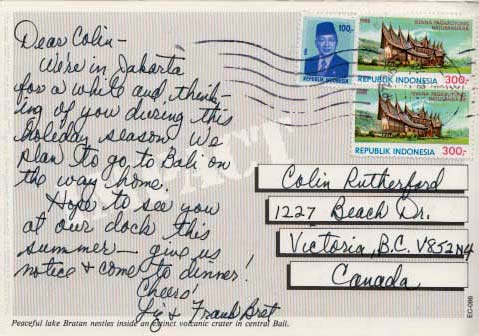 Dear Colin-
We're in Jakarta
for a while and think-
ing of you during this
holiday season. We
plan to go to Bali on
the way home.
Hope to see you
at our dock this
summer - give us
notice & come to dinner!
Cheers!
& Frank Bret
Peaceful lake Bratan nestles inside an extinct volcanic crater in central Bali.
100.-
REPUBLIK INDONESIA
1988
ISTANA PAGARUYUNG
BATUSANGKAR
REPUBLIK INDONESIA
300.-
ISTANA PAGARUYUNG
BATUSANGKAR
REPUBLIK INDONESIA
300.-
Colin Rutherford
1227 Beach Dr.
Victoria, B.C. V8S2N4
Canada
EC-086